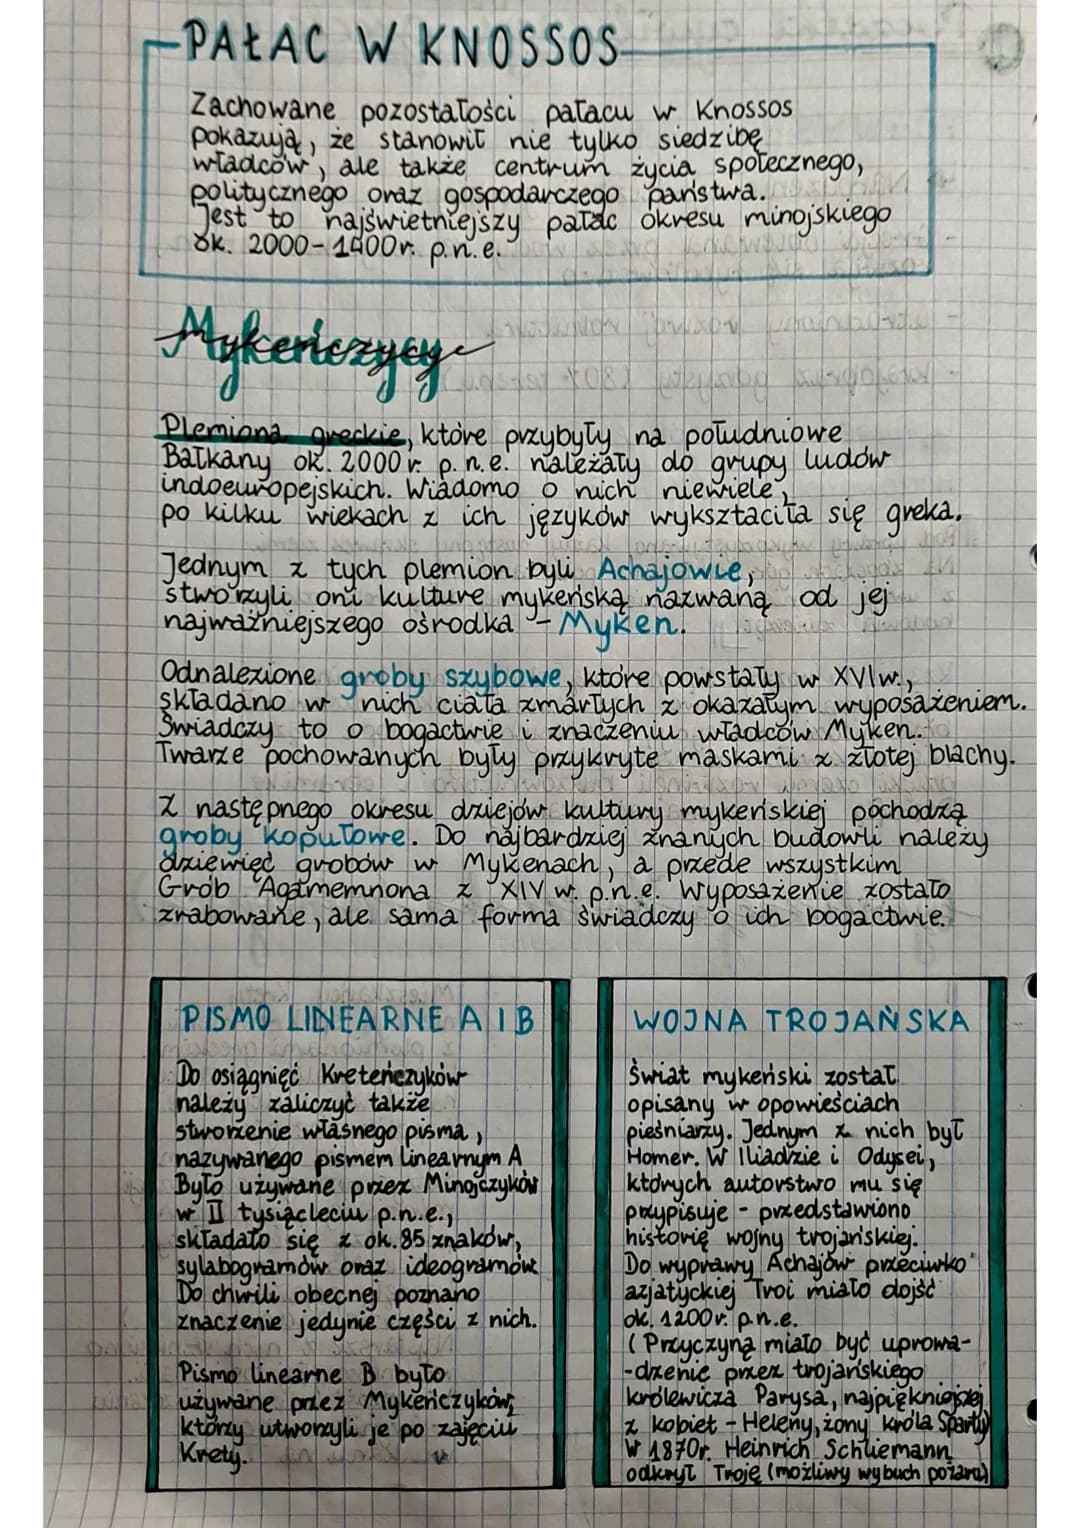 PAŁAC W KNOSSOS
Zachowane pozostałości pałacu w Knossos
pokazują, że stanowił nie tylko siedzibę
władców, ale także centrum życia społecznego,
politycznego oraz gospodarczego państwa.
Jest to najświetniejszy pałac okresu minojskiego
ok. 2000-1400r. p.n.e.
Mykeńczycy
Plemiona greckie, które przybyły na południowe
Bałkany ok. 2000 r. p.n.e. należały do grupy ludów
indoeuropejskich. Wiadomo o nich niewiele,
po kilku wiekach z ich języków wykształciła się greka.
Jednym z tych plemion byli Achajowie,
stworzyli oni kulturę mykeńską nazwaną od jej
najważniejszego ośrodka - Myken.
Odnalezione groby szybowe, które powstały w XVI w.,
składano w nich ciała zmarłych z okazałym wyposażeniem.
Świadczy to o bogactwie i znaczeniu władców Myken.
Twarze pochowanych były przykryte maskami z złotej blachy.
Z następnego okresu dziejów kultury mykeńskiej pochodzą
groby kopułowe. Do najbardziej znanych budowli należy
dziewięć grobów w Mykenach, a przede wszystkim
Grób Agamemnona z XIV w. p.n.e. Wyposażenie zostało
zrabowane, ale sama forma świadczy o ich bogactwie.
PISMO LINEARNE A I B
Do osiągnięć Kreteńczyków
należy zaliczyć także
stworzenie własnego pisma,
nazywanego pismem linearnym A
Było używane przez Minojczyków
w II tysiącleciu p.n.e.,
składało się z ok. 85 znaków,
sylabogramów oraz ideogramów
Do chwili obecnej poznano
znaczenie jedynie części z nich.
Pismo linearne B było
używane przez Mykeńczyków,
którzy utworzyli je po zajęciu
Krety.
WOJNA TROJAŃSKA
Świat mykeński został
opisany w opowieściach
pieśniarzy. Jednym z nich był
Homer. W Iliadzie i Odysei,
których autorstwo mu się
przypisuje - przedstawiono
historię wojny trojańskiej.
Do wyprawy Achajów przeciwko
azjatyckiej Troi miało dojść
ok. 1200r. p.n.e.
(Przyczyną miało być uprowa-
-dzenie przez trojańskiego
królewicza Parysa, najpiękniejszej
z kobiet - Heleny, żony króla Sparty)
W 1870r. Heinrich Schliemann
odkrył Troję (możliwy wybuch pożaru)